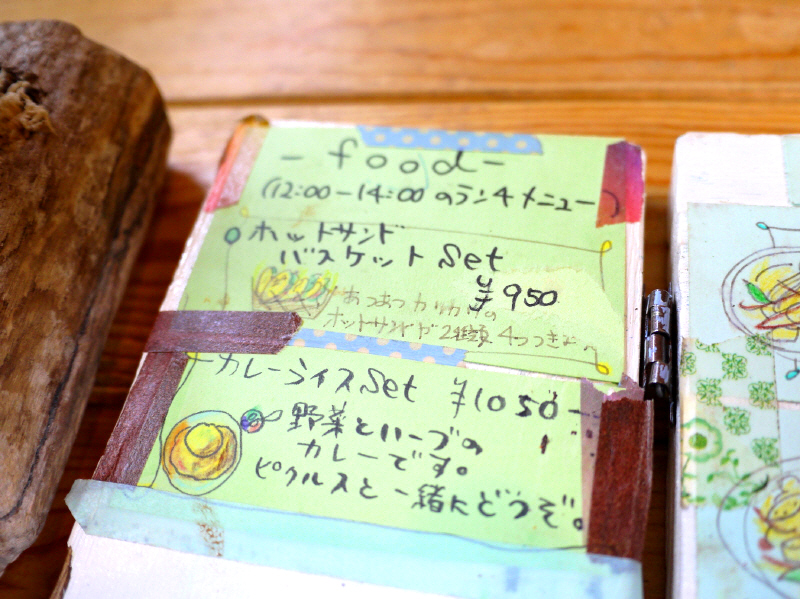 - food -
(12:00-14:00のランチメニュー)
ホットサンド
バスケット Set
¥950
あつあつカリカリの
ホットサンドが2種類 4つつきます
カレーライス Set ¥1050-
野菜とハーブの
カレーです。
ピクルスと一緒にどうぞ。